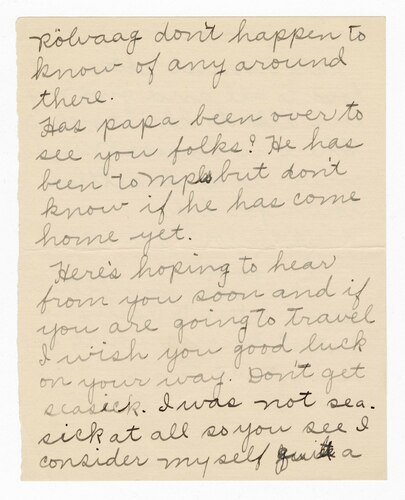 Rölvaag don't happen to
know of any around
there.
Has papa been over to
see you folks? He has
been to Mpls but don't
know if he has come
home yet.
Here's hoping to hear
from you soon and if
you are going to travel
I wish you good luck
on your way. Don't get
seasick. I was not sea-
sick at all so you see I
consider my self quite a